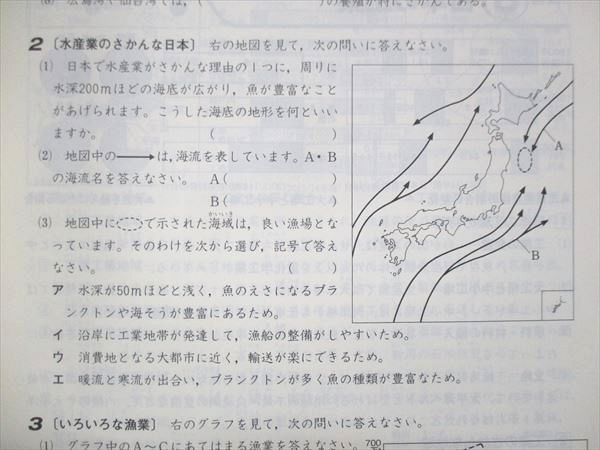 (8) 広島湾や仙台湾では，(　　　　)の養殖が特にさかんである。
2 〔水産業のさかんな日本〕 右の地図を見て，次の問いに答えなさい。
(1) 日本で水産業がさかんな理由の1つに，周りに
水深200mほどの海底が広がり，魚が豊富なこと
があげられます。こうした海底の地形を何といい
ますか。 (　　　　)
(2) 地図中の→は，海流を表しています。A・B
の海流名を答えなさい。 A(
B(
かいいき
(3) 地図中に で示された海域は，良い漁場とな
っています。そのわけを次から選び，記号で答え
なさい。 (　　)
ア 水深が50mほどと浅く，魚のえさになるプラ
ンクトンや海そうが豊富にあるため。
イ 沿岸に工業地帯が発達して，漁船の整備がしやすいため。
ウ 消費地となる大都市に近く，輸送が楽にできるため。
エ 暖流と寒流が出合い，プランクトンが多く魚の種類が豊富なため。
A
B
3 〔いろいろな漁業〕 右のグラフを見て，次の問いに答えなさい。
(1) グラフ中のA～Cにあてはまる漁業を答えなさい。
700